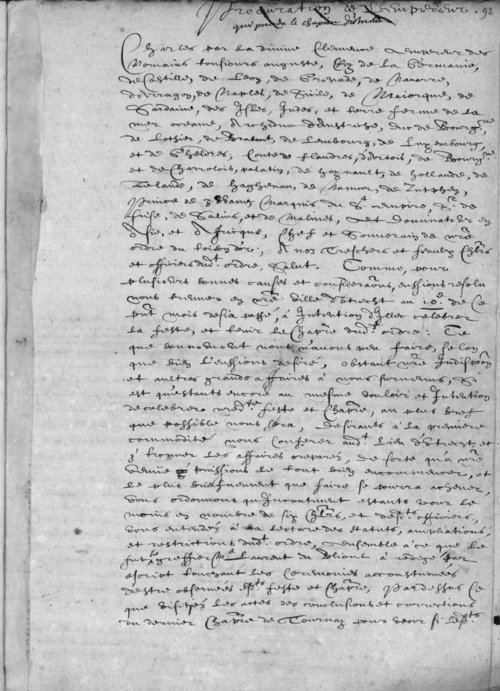 Procuration de Lempereur. 92
qui preside le chapitre d'utrecht
Charles par la divine Clemence Empereur des
Romains tousiours auguste, Roy de la Germanie,
de Castille, de Leon, de Grenade, de Navarre,
d'Arragon, de Naples, de Sicile, de Maiorque, de
Sardaine, des Isles, Indes, et terre ferme de la
mer oceane, Archiduc d'Austriche, duc de Bourgne
de Lothier, de Brabant, de Lembourg, de Luxembourg,
et de Gheldres, Conte de flandres, d'Artois, de Bourgne
et de Charrolois, palatin, de haynault, de hollande, de
Zelande, de haghenau, de Namur, de Zutphen,
Prince de Zwane, Marquis du St. empire, Sr. de
frise, de Salins, et de Malines, Et Dominateur en
Asie, et Affricque, Chef et Souverain de nre
ordre du toison d'or, A noz Treschers et feaulx Chlrs
et officiers dudt. ordre, Salut. Comme, pour
plusieurs bonnes causes et considerations, eussions resolu
nous trouver en nre ville d'utrecht au 10e. de Ce
pnt mois desia passe, à Intention d'Illec celebrer
la feste, et tenir le Chapre dudt. ordre; Ce
que bonnement nous n'avons peu faire, selon
que bien l'eussions desiré, obstant nre Indispon
et aultres grands affaires à nous survenus, Si
est qu'estants encore au mesme vouloir et Intention
de celebrer nredt. feste et Chapre, au plus bref
que possible nous sera, Desirants à la premiere
commodité nous Conferer audt. lieu d'utrecht, et
y trouver les affaires preparez, de sorte qu'a nre
venue puissions le tout bien encommencer, et
le plus briefvement que faire se pourra achever,
Vous ordonnons qu'Incontinent estants venuz le
moins en nombre de six Chlrs, et desdts. officiers,
vous entendez à la lecture des statuts, ampliations,
et restrictions dudt. ordre, ensemble à ce que le
greffier Me Laurent du Blioul à redigé par
escript touchant les Ceremonies accoustumées
d'estre observées esdts. feste et Chapre, Par dessus Ce
que visitez les actes des conclusions et corrections
du dernier Chapre de Tournay pour veoir si lesdts.